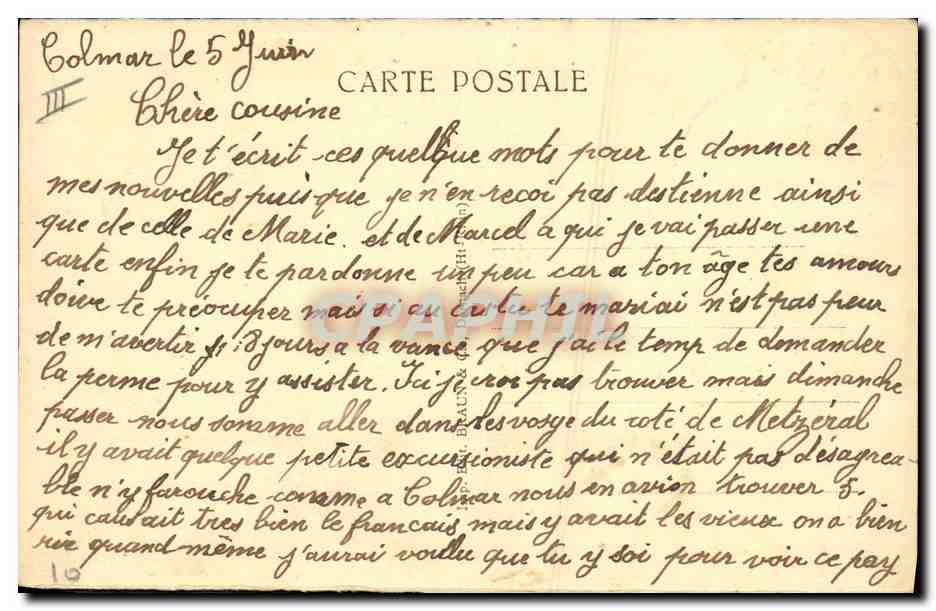 Colmar le 5 Juin
III
CARTE POSTALE
Chère cousine
Je t'écrit ces quelque mots pour te donner de
mes nouvelles puis que je n'en recoi pas des tienne ainsi
que de celle de Marie. et de Marcel a qui je vai passer une
carte enfin je te pardonne un peu car a ton âge tes amours
doive te préocuper mais si au cas tu te mariai n'est pas peur
de m'avertir 8 jours a la vance que j'ai le temp de demander
la perme pour y assister. Ici je croi pas trouver mais dimanche
passer nous somme aller dans les vosge du coté de Metzéral
il y avait quelque petite excursioniste qui n'était pas désagrea-
ble n'y farouche comme a Colmar nous en avion trouver 5.
qui causait tres bien le francais mais y avait les vieux on a bien
rir quand même j'aurai voullu que tu y soi pour voir ce pay
10
BRAUN &
CPAPHIL